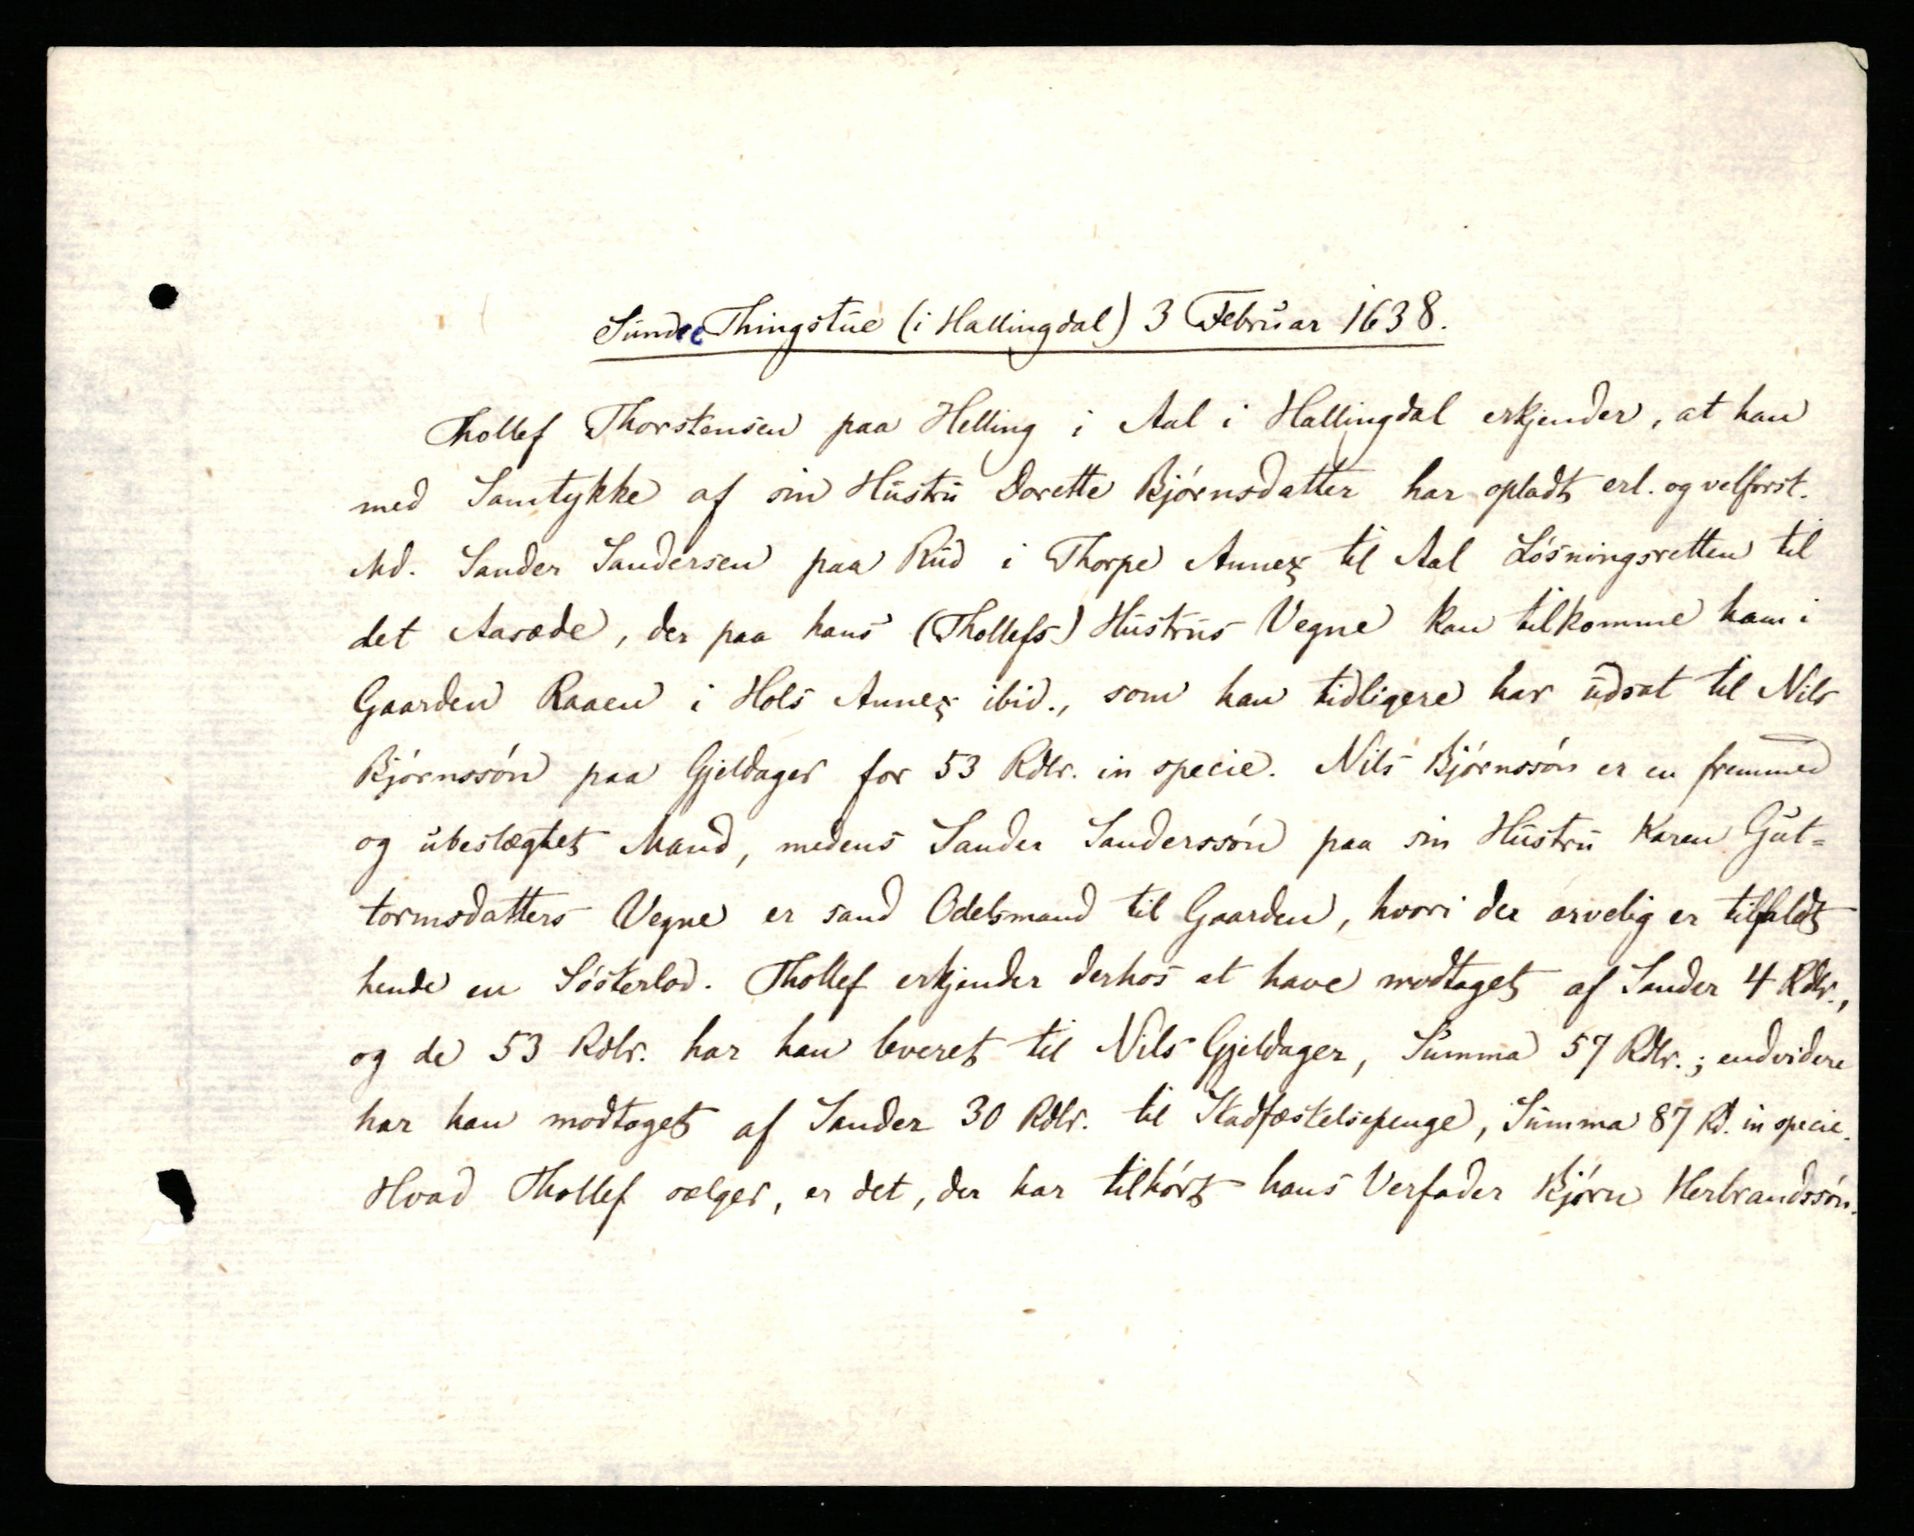 Sunde Thingstue (i Hallingdal) 3 Februar 1638.
Thollef Thorstensen paa Helling i Aal i Hallingdal erkjender, at han
med Samtykke af sin Hustru Dorette Bjørnsdatter har opladt erl. og velforst.
Md. Sander Sandersen paa Rud i Thorpe Annex til Aal Løsningsretten til
det Aasæde, der paa hans (Thollefs) Hustrus Vegne kan tilkomme ham i
Gaarden Raaen i Hols Annex ibid., som han tidligere har udsat til Nils
Bjørnssøn paa Gjeldager for 53 Rdlr. in specie. Nils Bjørnssøn er en fremmed
og ubeslægtet Mand, medens Sander Sanderssøn paa sin Hustru Karen Gut=
tormsdatters Vegne er sand Odelsmand til Gaarden, hvori der arvelig er tilfaldt
hende en Søsterlod. Thollef erkjender derhos at have modtaget af Sander 4 Rdlr.,
og de 53 Rdlr. har han leveret til Nils Gjeldager, Summa 57 Rdlr.; endvidere
har han modtaget af Sander 30 Rdlr. til Stadfæstelsepenge, Summa 87 Rd. in specie.
Hvad Thollef sælger, er det, der har tilhørt hans Verfader Bjørn Herbrandssøn.